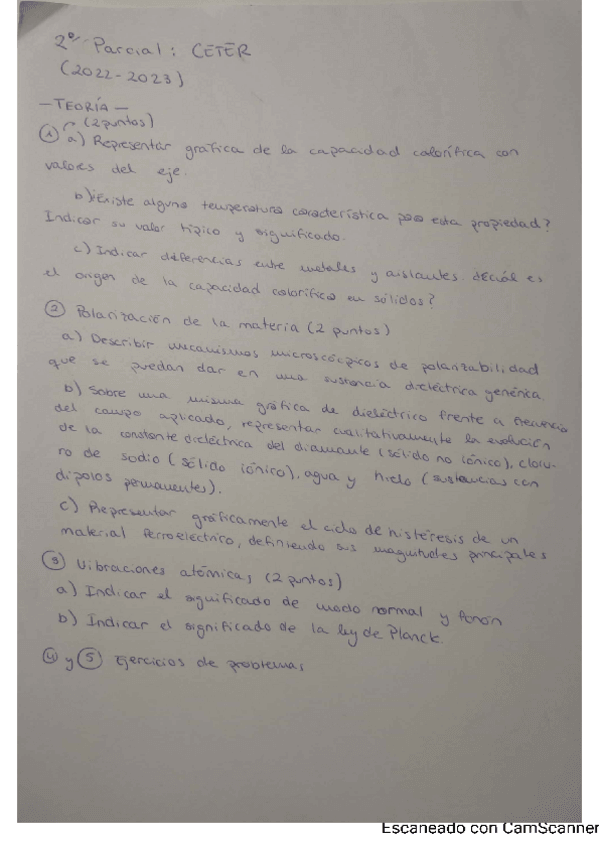 2º Parcial: CETER
(2022-2023)
- TEORÍA -
(2 puntos)
① a) Representar gráfica de la capacidad calorífica con
valores del eje.
b) ¿Existe alguna temperatura característica para esta propiedad?
Indicar su valor típico y significado.
c) Indicar diferencias entre metales y aislantes. ¿Cuál es
el origen de la capacidad calorífica en sólidos?
② Polarización de la materia (2 puntos)
a) Describir mecanismos microscópicos de polarizabilidad
que se puedan dar en una sustancia dieléctrica genérica
b) Sobre una misma gráfica de dieléctrico frente a frecuencia
del campo aplicado, representar cualitativamente la evolución
de la constante dieléctrica del diamante (sólido no iónico), cloru-
ro de sodio (sólido iónico), agua y hielo (sustancias con
dipolos permanentes).
c) Representar gráficamente el ciclo de histéresis de un
material ferroeléctrico, definiendo sus magnitudes principales
③ Vibraciones atómicas (2 puntos)
a) Indicar el significado de modo normal y fonón
b) Indicar el significado de la ley de Planck.
④ y ⑤ Ejercicios de problemas
Escaneado con CamScanner